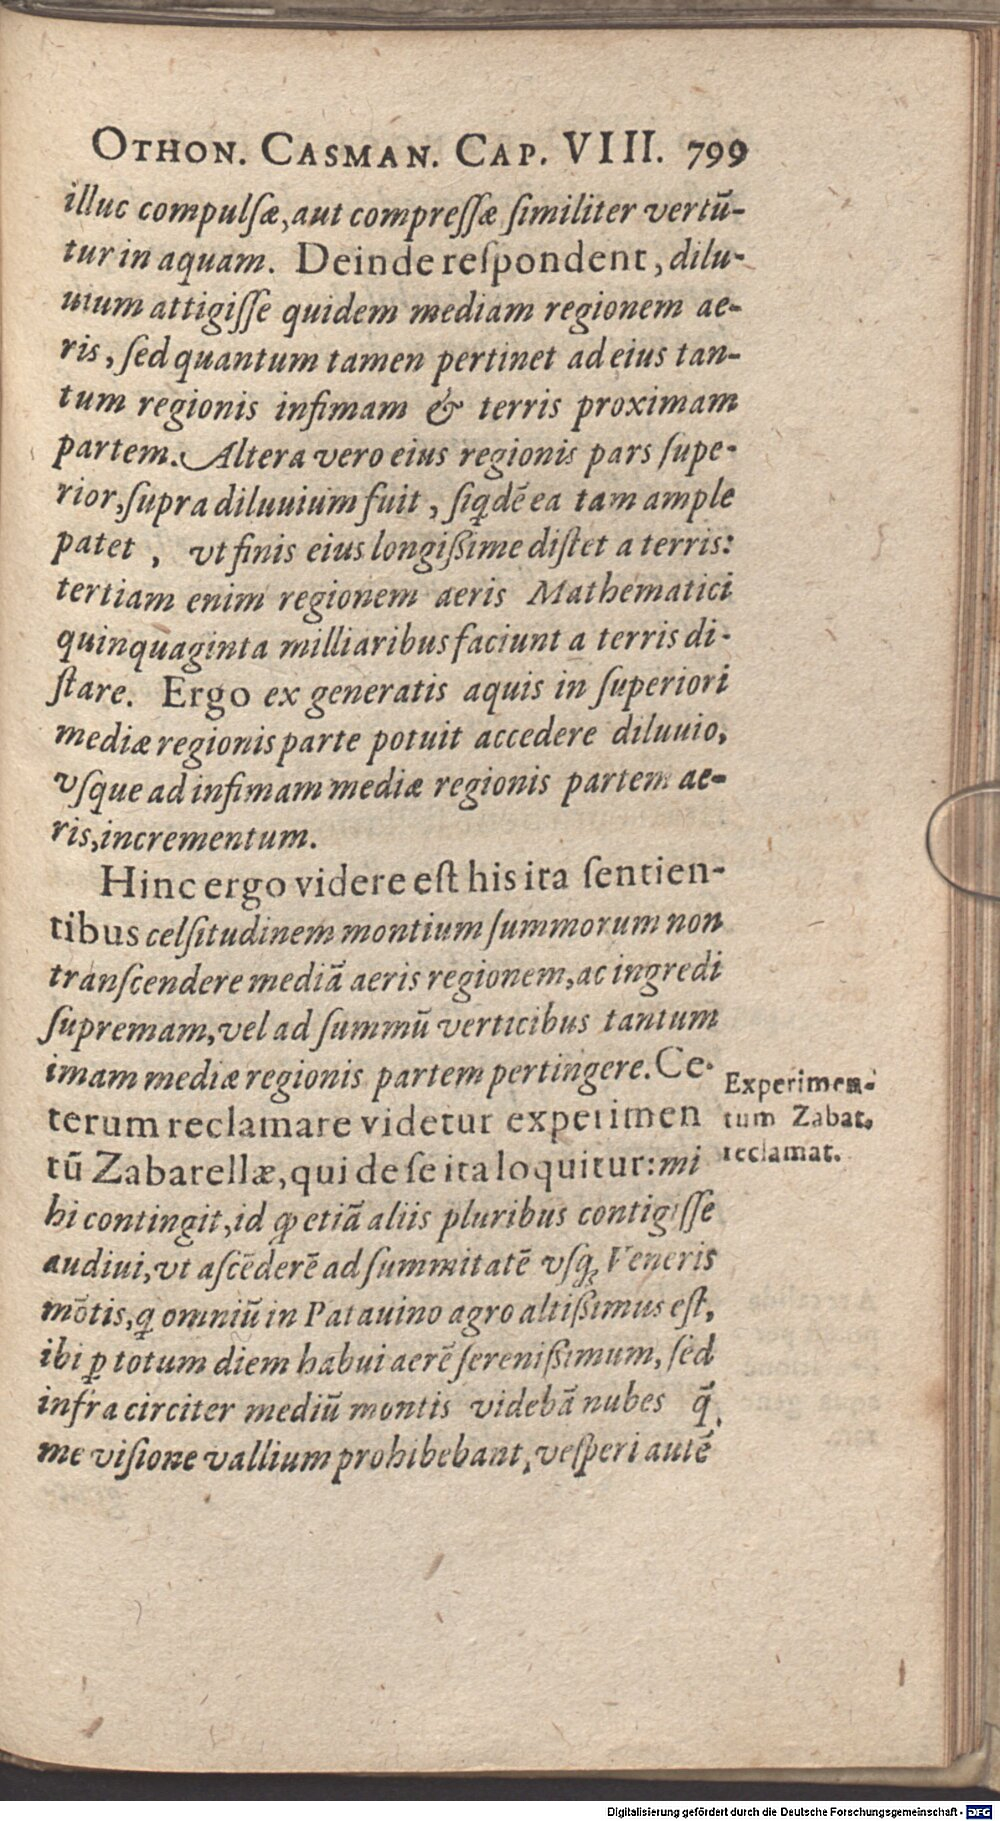 OTHON. CASMAN. CAP. VIII. 799
illuc compulſæ, aut compreſſæ ſimiliter vertũ-
tur in aquam. Deinde reſpondent, dilu-
uium attigiſſe quidem mediam regionem ae-
ris, ſed quantum tamen pertinet ad eius tan-
tum regionis infimam & terris proximam
partem. Altera vero eius regionis pars ſupe-
rior, ſupra diluuium fuit, ſiq́dẽ ea tam ample
patet, vt finis eius longißime diſtet a terris:
tertiam enim regionem aeris Mathematici
quinquaginta milliaribus faciunt a terris di-
ſtare. Ergo ex generatis aquis in ſuperiori
mediæ regionis parte potuit accedere diluuio,
vſque ad infimam mediæ regionis partem ae-
ris, incrementum.
Hinc ergo videre eſt his ita ſentien-
tibus celſitudinem montium ſummorum non
tranſcendere mediã aeris regionem, ac ingredi
ſupremam, vel ad ſummũ verticibus tantum
imam mediæ regionis partem pertingere. Ce-
terum reclamare videtur experimen
tũ Zabarellæ, qui de ſe ita loquitur: mi
hi contingit, id ꝙ etiã aliis pluribus contigiſſe
audiui, vt aſcẽderẽ ad ſummitatẽ vſq; Veneris
mõtis, q́ omniũ in Patauino agro altißimus eſt,
ibi ꝑ totum diem habui aerẽ ſerenißimum, ſed
infra circiter mediũ montis videbã nubes q̃
me viſione vallium prohibebant, veſperi autẽ
Experimen-
tum Zabar.
reclamat.
Digitalisierung gefördert durch die Deutsche Forschungsgemeinschaft - DFG